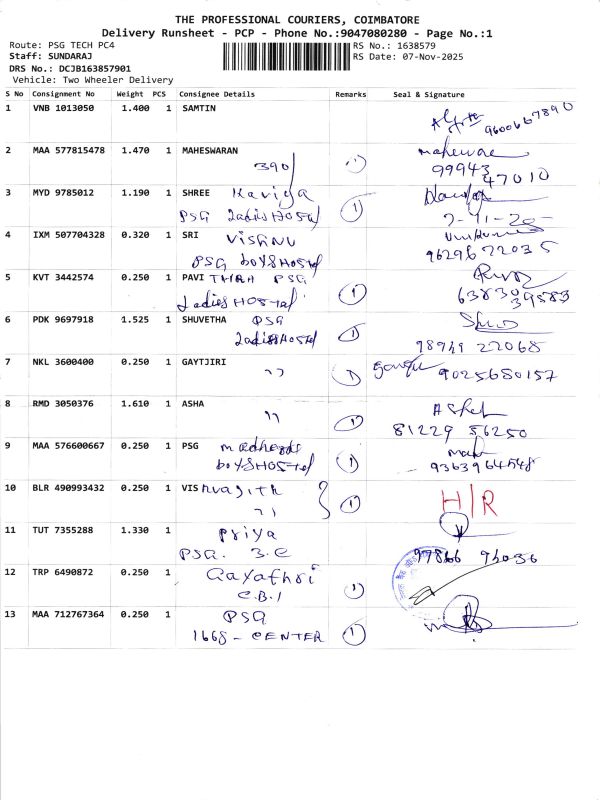 THE PROFESSIONAL COURIERS, COIMBATORE
Delivery Runsheet - PCP - Phone No.:9047080280 - Page No.:1
Route: PSG TECH PC4
RS No.: 1638579
Staff: SUNDARAJ
RS Date: 07-Nov-2025
DRS No.: DCJB163857901
Vehicle: Two Wheeler Delivery
S No Consignment No Weight PCS Consignee Details Remarks Seal & Signature
1 VNB 1013050 1.400 1 SAMTIN
9600667890
2 MAA 577815478 1.470 1 MAHESWARAN
390 1
99943
47010
3 MYD 9785012 1.190 1 SHREE Kaviya
PSG Ladies Hostel 1
4 IXM 507704328 0.320 1 SRI VISHNU
PSG boYS Hostel
96296 22035
5 KVT 3442574 0.250 1 PAVI THRA PSG
Ladies Hostel 1
638303
39583
6 PDK 9697918 1.525 1 SHUVETHA PSG
Ladies Hostel 1
98941 22068
7 NKL 3600400 0.250 1 GAYTJIRI
" 1 9025680157
8 RMD 3050376 1.610 1 ASHA
" 1
81229 56250
9 MAA 576600667 0.250 1 PSG
boYS Hostel 1
10 BLR 490993432 0.250 1 VIS
" 1 H/R
11 TUT 7355288 1.330 1 Priya
PSG.
97866
12 TRP 6490872 0.250 1 Gayathri
C.B.I 1
13 MAA 712767364 0.250 1 PSG
1668 - CENTER 1